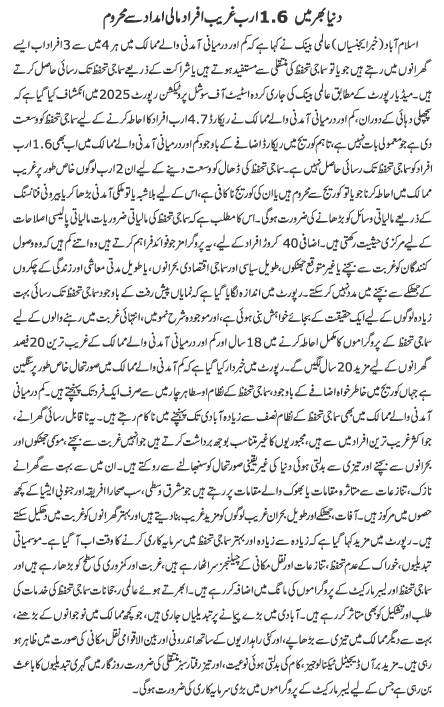 دنیا بھر میں 1.6 ارب غریب افراد مالی امداد سے محروم
اسلام آباد (خبر ایجنسیاں) عالمی بینک نے کہا ہے کہ کم اور درمیانی آمدنی والے ممالک میں ہر 4 میں سے 3 افراد اب ایسے
گھرانوں میں رہتے ہیں جو یا تو سماجی تحفظ کی منتقلی سے مستفید ہوتے ہیں یا شراکت کے ذریعے سماجی تحفظ تک رسائی حاصل کرتے
ہیں۔ میڈیا رپورٹ کے مطابق عالمی بینک کی جاری کردہ اسٹیٹ آف سوشل پروٹیکشن رپورٹ 2025 میں انکشاف کیا گیا ہے کہ
پچھلی دہائی کے دوران، کم اور درمیانی آمدنی والے ممالک نے ریکارڈ 4.7 ارب افراد کا احاطہ کرنے کے لیے سماجی تحفظ کو وسعت
دی ہے جو معمولی بات نہیں ہے، تاہم کوریج میں ریکارڈ اضافے کے باوجود کم اور درمیانی آمدنی والے ممالک میں اب بھی 1.6 ارب
افراد کو سماجی تحفظ تک رسائی حاصل نہیں ہے۔ سماجی تحفظ کی ڈھال کو وسعت دینے کے لیے ان 2 ارب لوگوں خاص طور پر غریب
ممالک میں احاطہ کرنا جو یا تو کوریج سے محروم ہیں یا ان کی کوریج ناکافی ہے، اس کے لیے بلاشبہ یا تو ملکی آمدنی بڑھا کر یا بیرونی فنانسنگ
کے ذریعے مالیاتی وسائل کو بڑھانے کی ضرورت ہوگی۔ اس کا مطلب ہے کہ سماجی تحفظ کی مالیاتی ضروریات مالیاتی پالیسی اصلاحات
کے لیے مرکزی حیثیت رکھتی ہیں۔ اضافی 40 کروڑ افراد کے لیے، یہ پروگرامز جو فوائد فراہم کرتے ہیں وہ اتنے کم ہیں کہ وہ وصول
کنندگان کو غربت سے بچنے یا غیر متوقع جھٹکوں، طویل سیاسی اور سماجی اقتصادی بحرانوں، یا طویل مدتی معاشی اور زندگی کے چکروں
کے جھٹکے سے بچنے میں مدد نہیں کر سکتے۔ رپورٹ میں اندازہ لگایا گیا ہے کہ نمایاں پیش رفت کے باوجود سماجی تحفظ تک رسائی بہت
زیادہ لوگوں کے لیے ایک حقیقت کے بجائے خواہش بنی ہوئی ہے، اور موجودہ شرح نمو میں، انتہائی غربت میں رہنے والوں کے لیے
سماجی تحفظ کے پروگراموں کا مکمل احاطہ کرنے میں 18 سال اور کم اور درمیانی آمدنی والے ممالک کے غریب ترین 20 فیصد
گھرانوں کے لیے مزید 20 سال لگیں گے۔ رپورٹ میں خبردار کیا گیا ہے کہ کم آمدنی والے ممالک میں صورتحال خاص طور پر سنگین
ہے جہاں کوریج میں خاطر خواہ اضافے کے باوجود، سماجی تحفظ کے نظام اوسطاً ہر چار میں سے صرف ایک فرد تک پہنچتے ہیں۔ کم درمیانی
آمدنی والے ممالک میں بھی سماجی تحفظ کے نظام نصف سے زیادہ آبادی تک پہنچنے میں ناکام رہتے ہیں۔ یہ ناقابل رسائی گھرانے،
جو اکثر غریب ترین افراد میں سے ہیں، مجبوریوں کا غیر متناسب بوجھ برداشت کرتے ہیں جو انہیں غربت سے بچنے، موسمی جھٹکوں اور
بحرانوں سے بچنے اور تیزی سے بدلتی ہوئی دنیا کی غیر یقینی صورتحال کو سنبھالنے سے روکتے ہیں۔ ان میں سے بہت سے گھرانے
نازک، تنازعات سے متاثرہ مقامات یا بھوک والے مقامات پر رہتے ہیں جو مشرق وسطی، سب صحارا افریقہ اور جنوبی ایشیا کے کچھ
حصوں میں مرکوز ہیں۔ آفات، جھٹکے اور طویل بحران غریب لوگوں کو مزید غریب بنا دیتے ہیں اور بہتر گھرانوں کو غربت میں دھکیل سکتے
ہیں۔ رپورٹ میں مزید کہا گیا ہے کہ زیادہ سے زیادہ اور بہتر سماجی تحفظ میں سرمایہ کاری کرنے کا وقت اب آ گیا ہے۔ موسمیاتی
تبدیلیوں، خوراک کے عدم تحفظ، تنازعات اور نقل مکانی کے چیلنجز سر اٹھا رہے ہیں، غربت اور کمزوری کی سطح کو بڑھا رہے ہیں، اور
سماجی تحفظ اور لیبر مارکیٹ کے پروگراموں کی مانگ میں اضافہ کر رہے ہیں۔ ابھرتے ہوئے عالمی رجحانات سماجی تحفظ کی خدمات کی
طلب اور تشکیل کو بھی متاثر کر رہے ہیں۔ آبادی میں بڑے پیمانے پر تبدیلیاں جاری ہیں، جو کچھ ممالک میں نوجوانوں کے بڑھنے،
بہت سے دیگر ممالک میں تیزی سے بڑھاپے، اور کئی راہداریوں کے ساتھ اندرونی اور بین الاقوامی نقل مکانی کی صورت میں ظاہر ہو
رہی ہیں۔ مزید برآں ڈیجیٹل ٹیکنالوجیز، کام کی بدلتی ہوئی نوعیت، اور تیز رفتار سبز منتقلی کی ضرورت روزگار میں گہری تبدیلیوں کا باعث
بن رہی ہے جس کے لیے لیبر مارکیٹ کے پروگراموں میں بڑی سرمایہ کاری کی ضرورت ہوگی۔